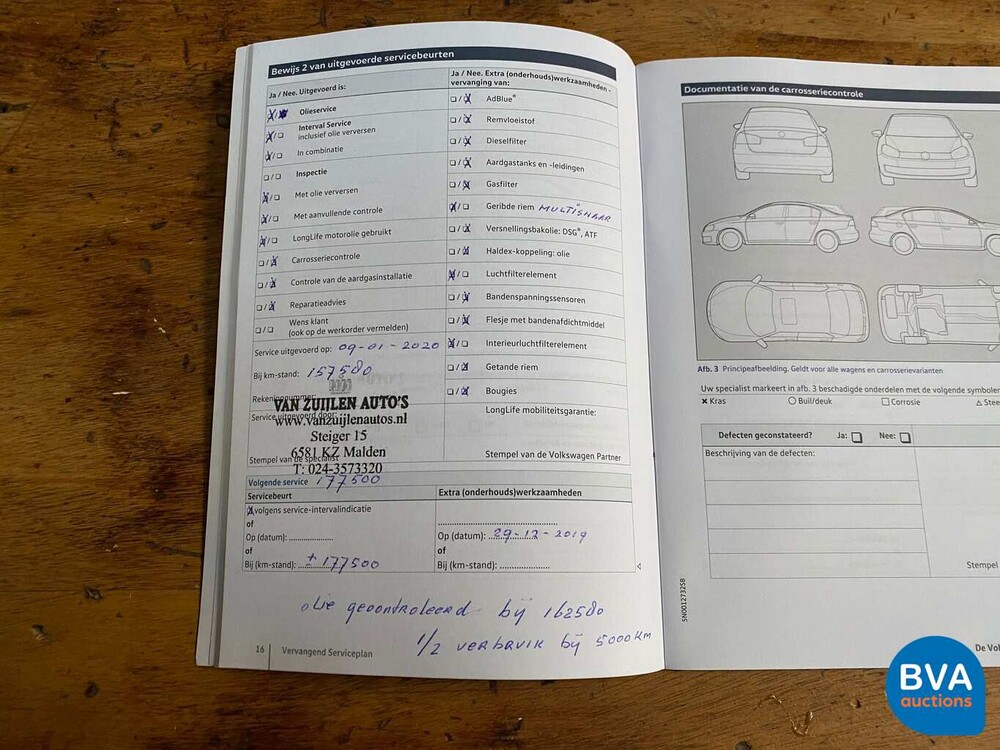 Bewijs 2 van uitgevoerde servicebeurten
Ja / Nee. Uitgevoerd is:
Olieservice
Interval Service
inclusief olie verversen
In combinatie
Inspectie
Met olie verversen
Met aanvullende controle
LongLife motorolie gebruikt
Carrosseriecontrole
Controle van de aardgasinstallatie
Reparatieadvies
Wens klant
(ook op de werkorder vermelden)
Service uitgevoerd op: 09-01-2020
Bij km-stand: 157580
Rekeningnummer:
Service uitgevoerd door:
VAN ZUIJLEN AUTO'S
www.vanzuijlenautos.nl
Steiger 15
6581 KZ Malden
T: 024-3573320
Stempel van de specialist
Ja / Nee. Extra (onderhouds)werkzaamheden -
vervanging van:
AdBlue®
Remvloeistof
Dieselfilter
Aardgastanks en -leidingen
Gasfilter
Geribde riem MULTISNAAR
Versnellingsbakolie: DSG®, ATF
Haldex-koppeling: olie
Luchtfilterelement
Bandenspanningssensoren
Flesje met bandenafdichtmiddel
Interieurluchtfilterelement
Getande riem
Bougies
LongLife mobiliteitsgarantie:
Stempel van de Volkswagen Partner
Volgende service 177500
Servicebeurt
volgens service-intervalindicatie
of
Op (datum): ....................
of
Bij (km-stand): ± 177500
Extra (onderhouds)werkzaamheden
Op (datum): 29-12-2019
of
Bij (km-stand): ....................
olie gecontroleerd bij 162580
1/2 verbruik bij 5000 km
16 Vervangend Serviceplan
Documentatie van de carrosseriecontrole
Afb. 3 Principeafbeelding. Geldt voor alle wagens en carrosserievarianten
Uw specialist markeert in afb. 3 beschadigde onderdelen met de volgende symbolen
Kras Buil/deuk Corrosie Stee
Defecten geconstateerd? Ja: Nee:
Beschrijving van de defecten:
Stempel
SNO0127325B
De Vol
BVA
auctions